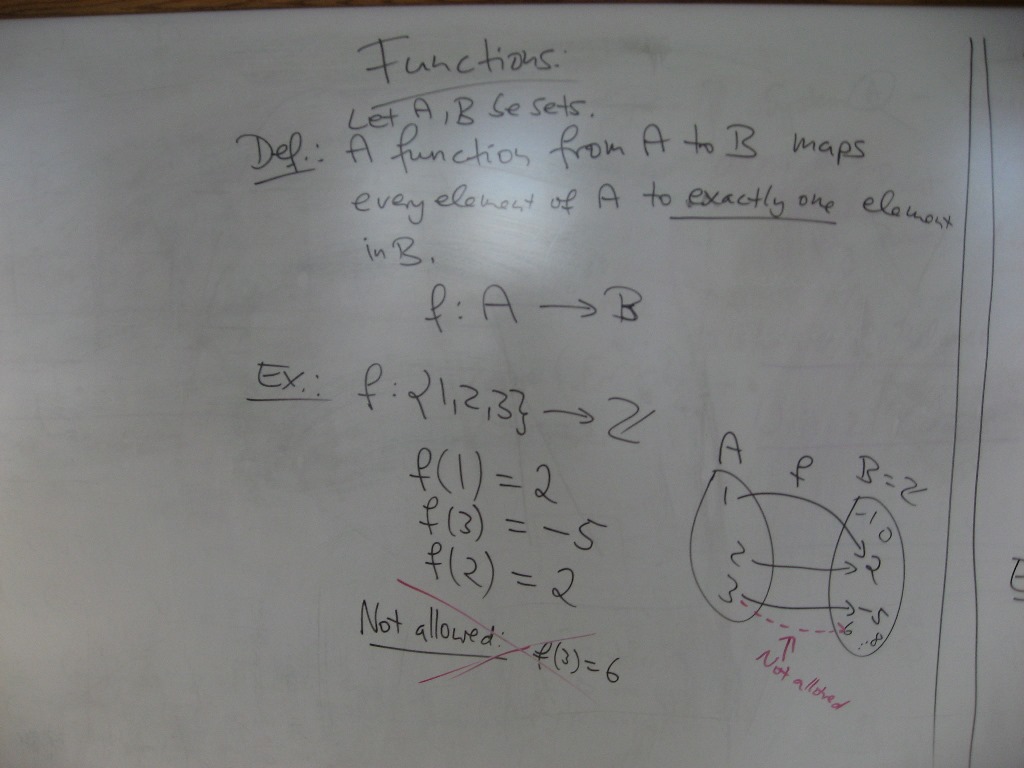 Functions:
Let A, B be sets.
Def.: A function from A to B maps
every element of A to exactly one element
in B.
f: A → B
Ex.: f: {1,2,3} → ℤ
f(1) = 2
f(3) = -5
f(2) = 2
Not allowed: f(3) = 6
A f B = ℤ
1 -1 0
2 2
3 -5
6 8
Not allowed